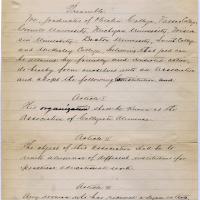 Preamble.
We, graduates of Oberlin College, Vassar College,
Cornell University, Michigan University, Wiscon-
sin University, Boston University, Smith College
and Wellesley College, believing that good can
be attained by friendly and united action,
do hereby form ourselves into an Association
and adopt the following Constitution and
Article I
This organization shall be known as the
Association of Collegiate Alumnae.
Article II
The object of this Association shall be to
unite alumnae of different institutions for
practical educational work.
Article III
Any woman who has received a degree in Arts,